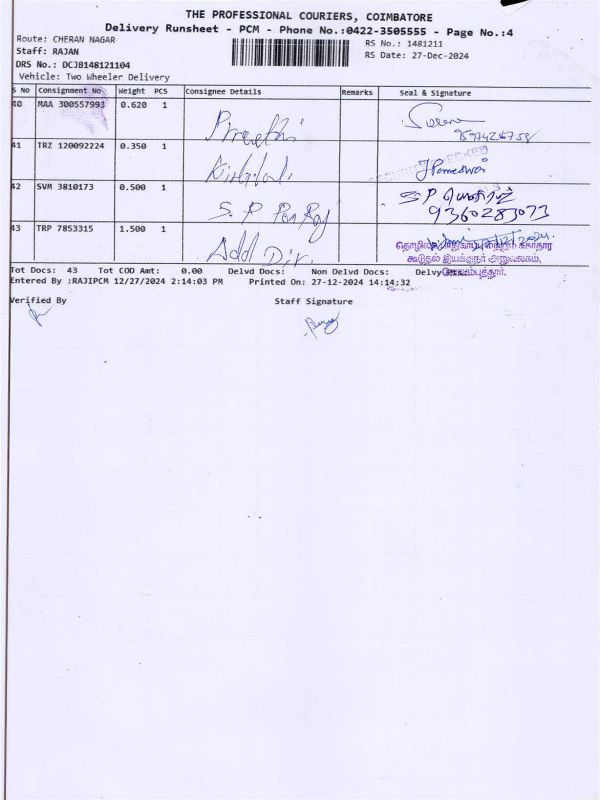 THE PROFESSIONAL COURIERS, COIMBATORE
Delivery Runsheet - PCM - Phone No.:0422-3505555 - Page No.:4
Route: CHERAN NAGAR
RS No.: 1481211
Staff: RAJAN
RS Date: 27-Dec-2024
DRS No.: DCJB148121104
Vehicle: Two Wheeler Delivery
S No Consignment No Weight PCS Consignee Details Remarks Seal & Signature
40 MAA 300557993 0.620 1 Preethi
41 TRZ 120092224 0.350 1
42 SVM 3810173 0.500 1 S. P Pon Raj S P
9360283073
43 TRP 7853315 1.500 1 Add Dir.
கூடுதல் இயக்குநர் அலுவலகம்,
Tot Docs: 43 Tot COD Amt: 0.00 Delvd Docs: Non Delvd Docs:
Entered By :RAJIPCM 12/27/2024 2:14:03 PM Printed On: 27-12-2024 14:14:32
Verified By Staff Signature